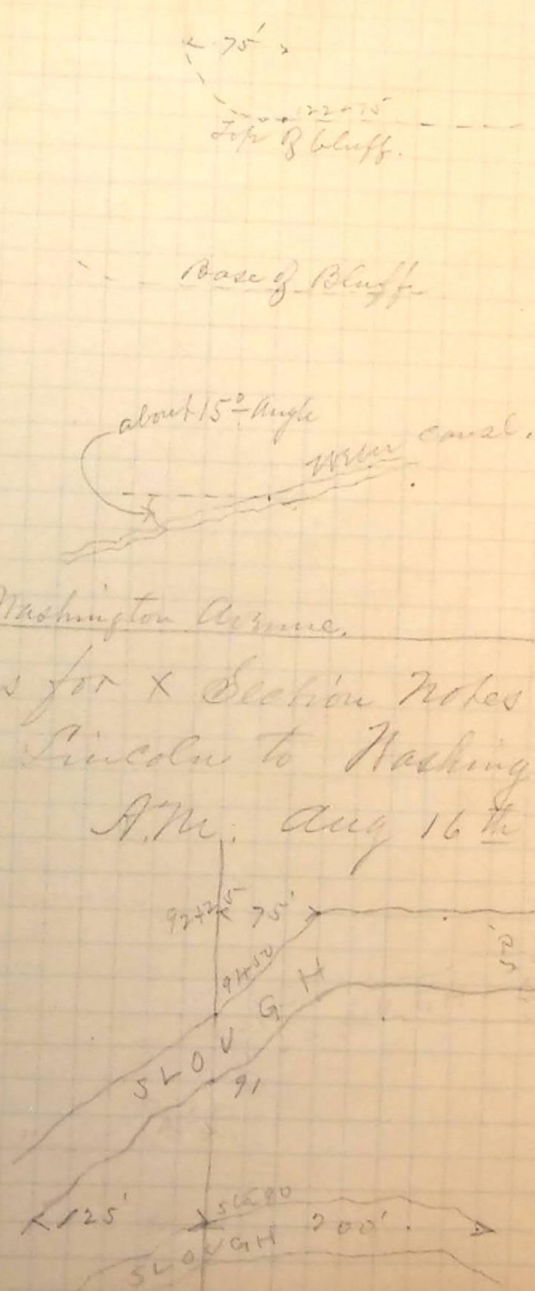 75'
122+75
Top of bluff.
Base of Bluff
about 15° Angle
Weber canal.
Washington Avenue.
s for X Section Notes
Lincoln to Washing
A.M. Aug 16th
92+25 75'
91+50
50'
SLOUGH
91
125'
200'
SLOUGH